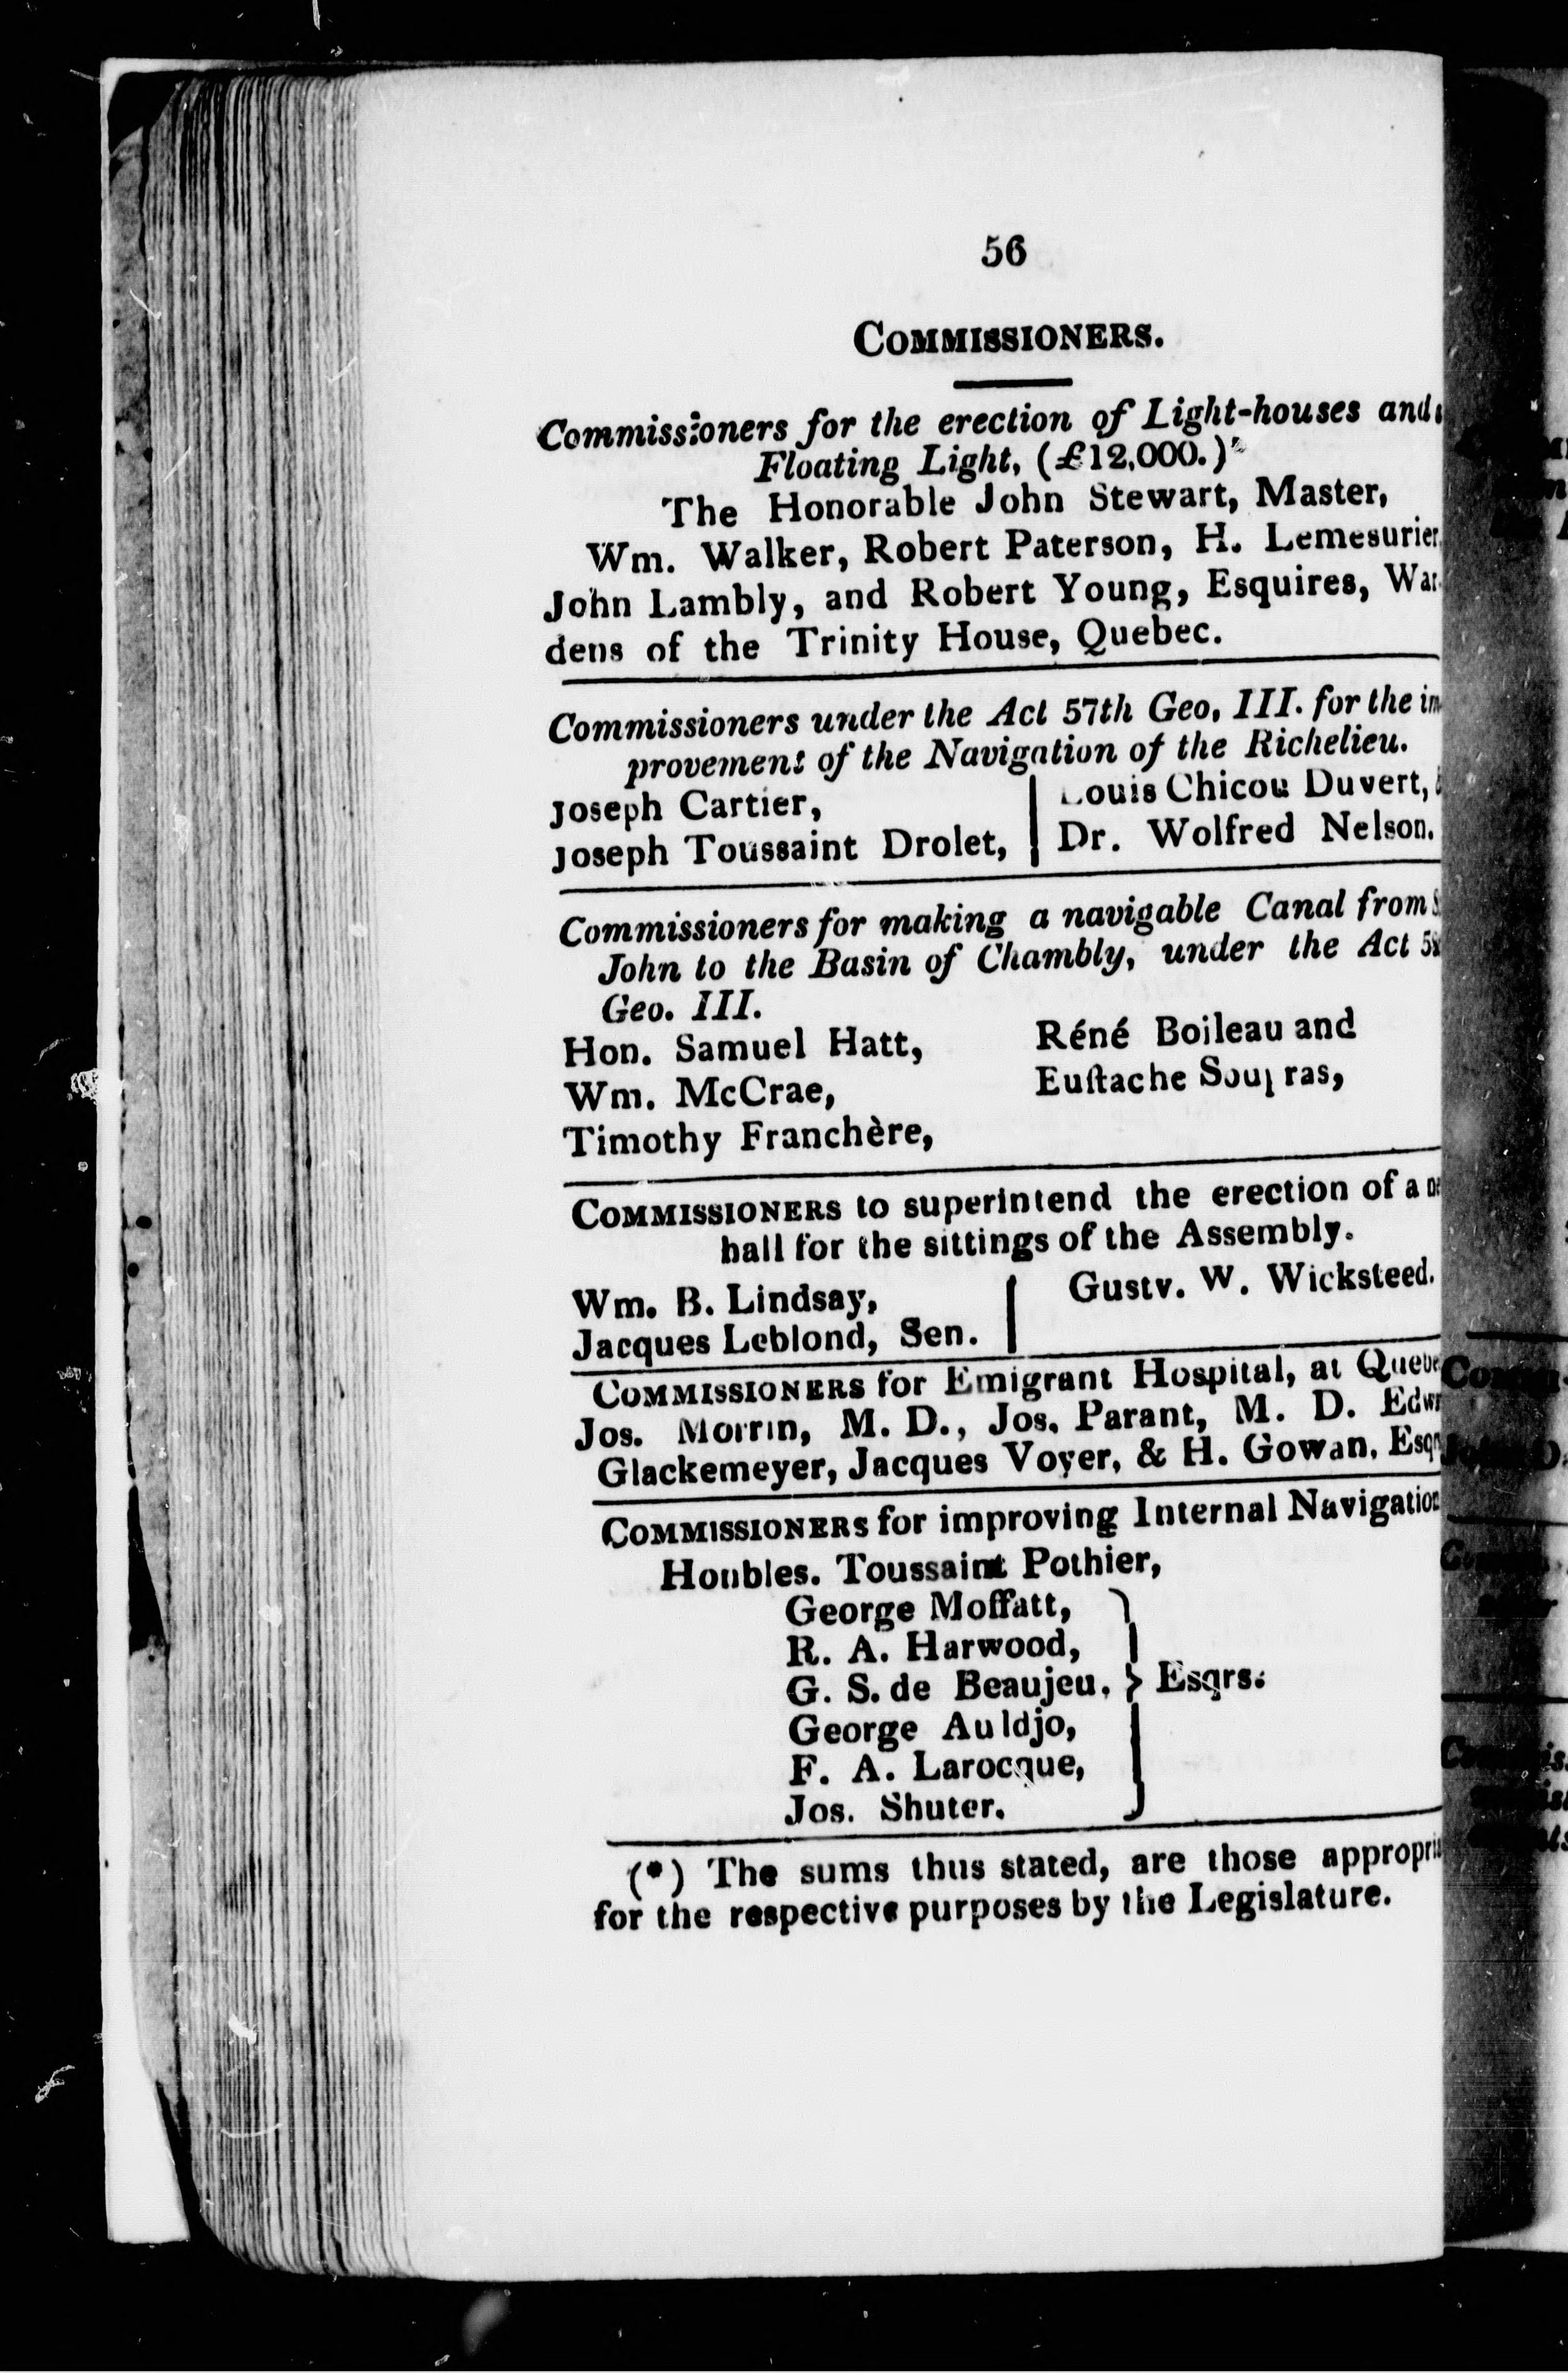 56
COMMISSIONERS.
Commissioners for the erection of Light-houses and
Floating Light, (£12,000.)*
The Honorable John Stewart, Master,
Wm. Walker, Robert Paterson, H. Lemesurier,
John Lambly, and Robert Young, Esquires, War-
dens of the Trinity House, Quebec.
Commissioners under the Act 57th Geo. III. for the im-
provement of the Navigation of the Richelieu.
Joseph Cartier,
Joseph Toussaint Drolet,
Louis Chicou Duvert,
Dr. Wolfred Nelson.
Commissioners for making a navigable Canal from
John to the Basin of Chambly, under the Act
Geo. III.
Hon. Samuel Hatt,
Wm. McCrae,
Timothy Franchère,
Réné Boileau and
Euſtache Soupras,
COMMISSIONERS to superintend the erection of a
hall for the sittings of the Assembly.
Wm. B. Lindsay,
Jacques Leblond, Sen.
Gustv. W. Wicksteed.
COMMISSIONERS for Emigrant Hospital, at Quebe
Jos. Morrin, M. D., Jos. Parant, M. D. Edw
Glackemeyer, Jacques Voyer, & H. Gowan, Esq
COMMISSIONERS for improving Internal Navigation
Honbles. Toussaint Pothier,
George Moffatt,
R. A. Harwood,
G. S. de Beaujeu, } Esqrs.
George Auldjo,
F. A. Larocque,
Jos. Shuter.
(*) The sums thus stated, are those appropria
for the respective purposes by the Legislature.